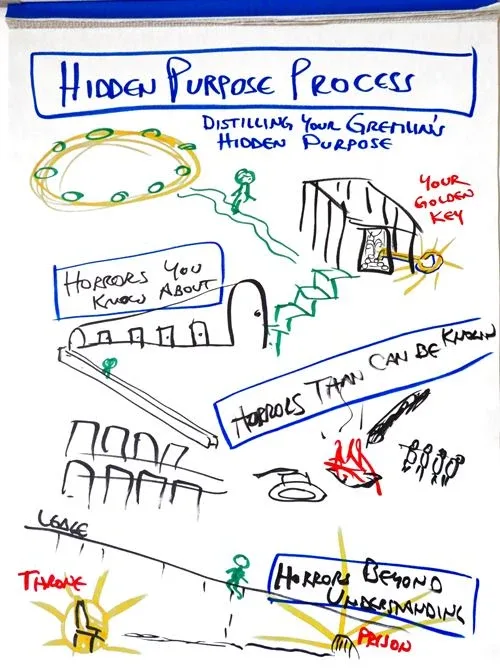 HIDDEN PURPOSE PROCESS
DISTILLING YOUR GREMLIN'S
HIDDEN PURPOSE
YOUR
GOLDEN
KEY
HORRORS YOU
KNOW ABOUT
HORRORS THAN CAN BE KNOWN
LEDGE
THRONE
HORRORS BEYOND
UNDERSTANDING
PRISON